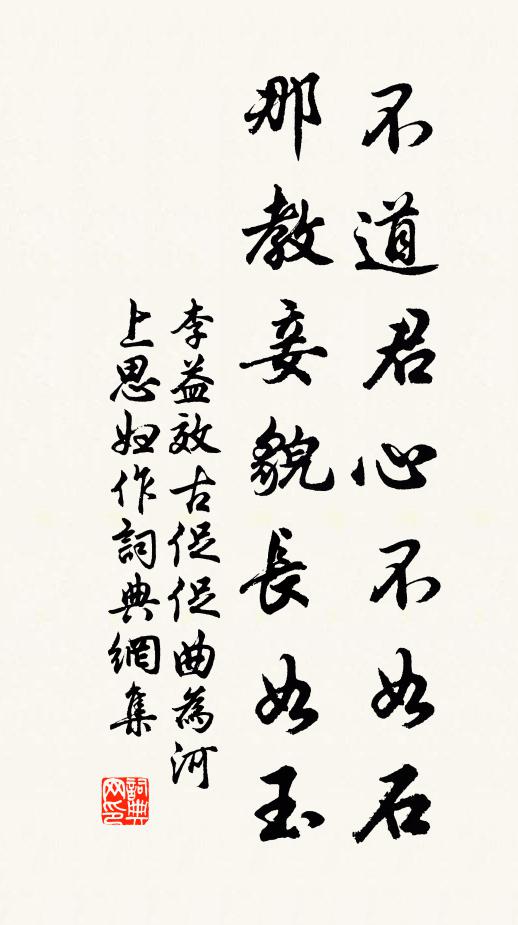 不道君心不如石
那教妾貌長如玉
李益效古促促曲為河
上思妇作詞典網集
詞典
网印